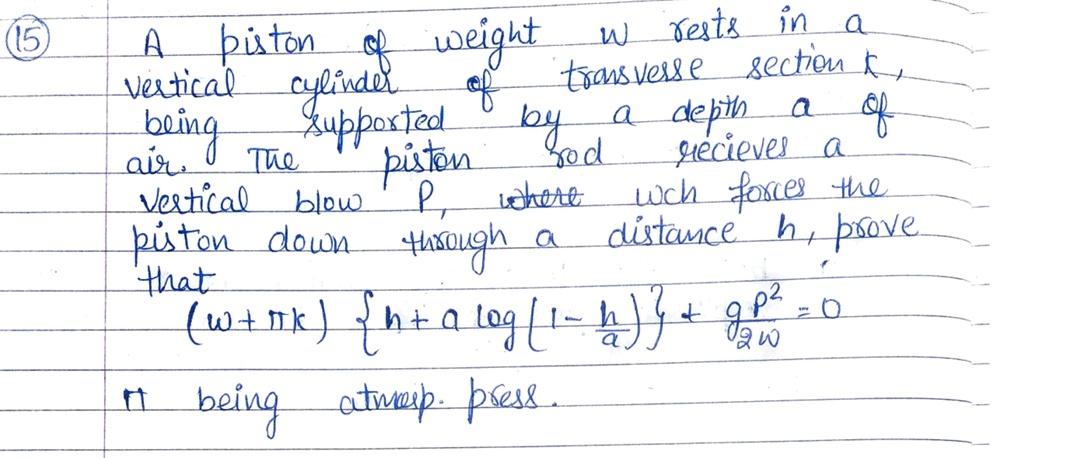 15 A piston of weight w rests in a
vertical cylinder of transverse section k,
being supported by a depth a of
air. The piston rod recieves a
vertical blow P, where wch forces the
piston down through a distance h, prove
that
(w + πk) {h + a log(1 - h/a)} + gP²/2w = 0
π being atmosp. press.